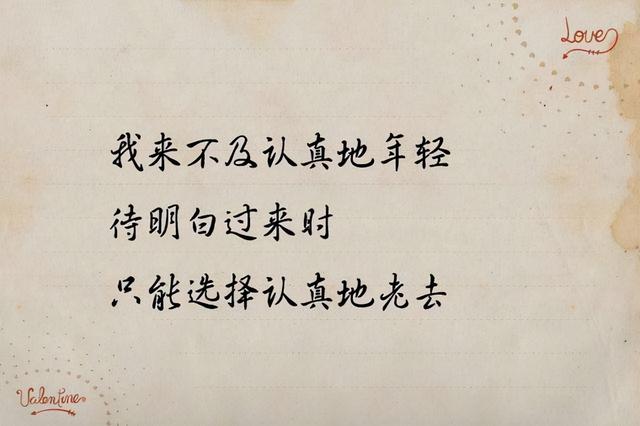 Love
我来不及认真地年轻
待明白过来时
只能选择认真地老去
Valentine